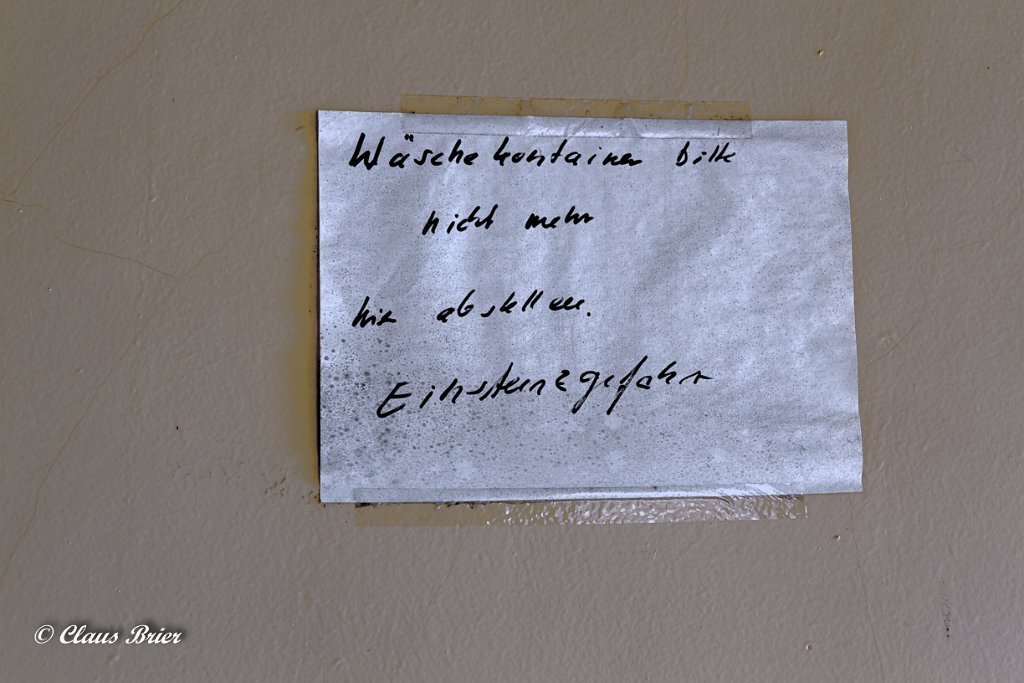 Wäschekontainer bitte
nicht mehr
hier abstellen.
Einsturzgefahr
© Claus Brier